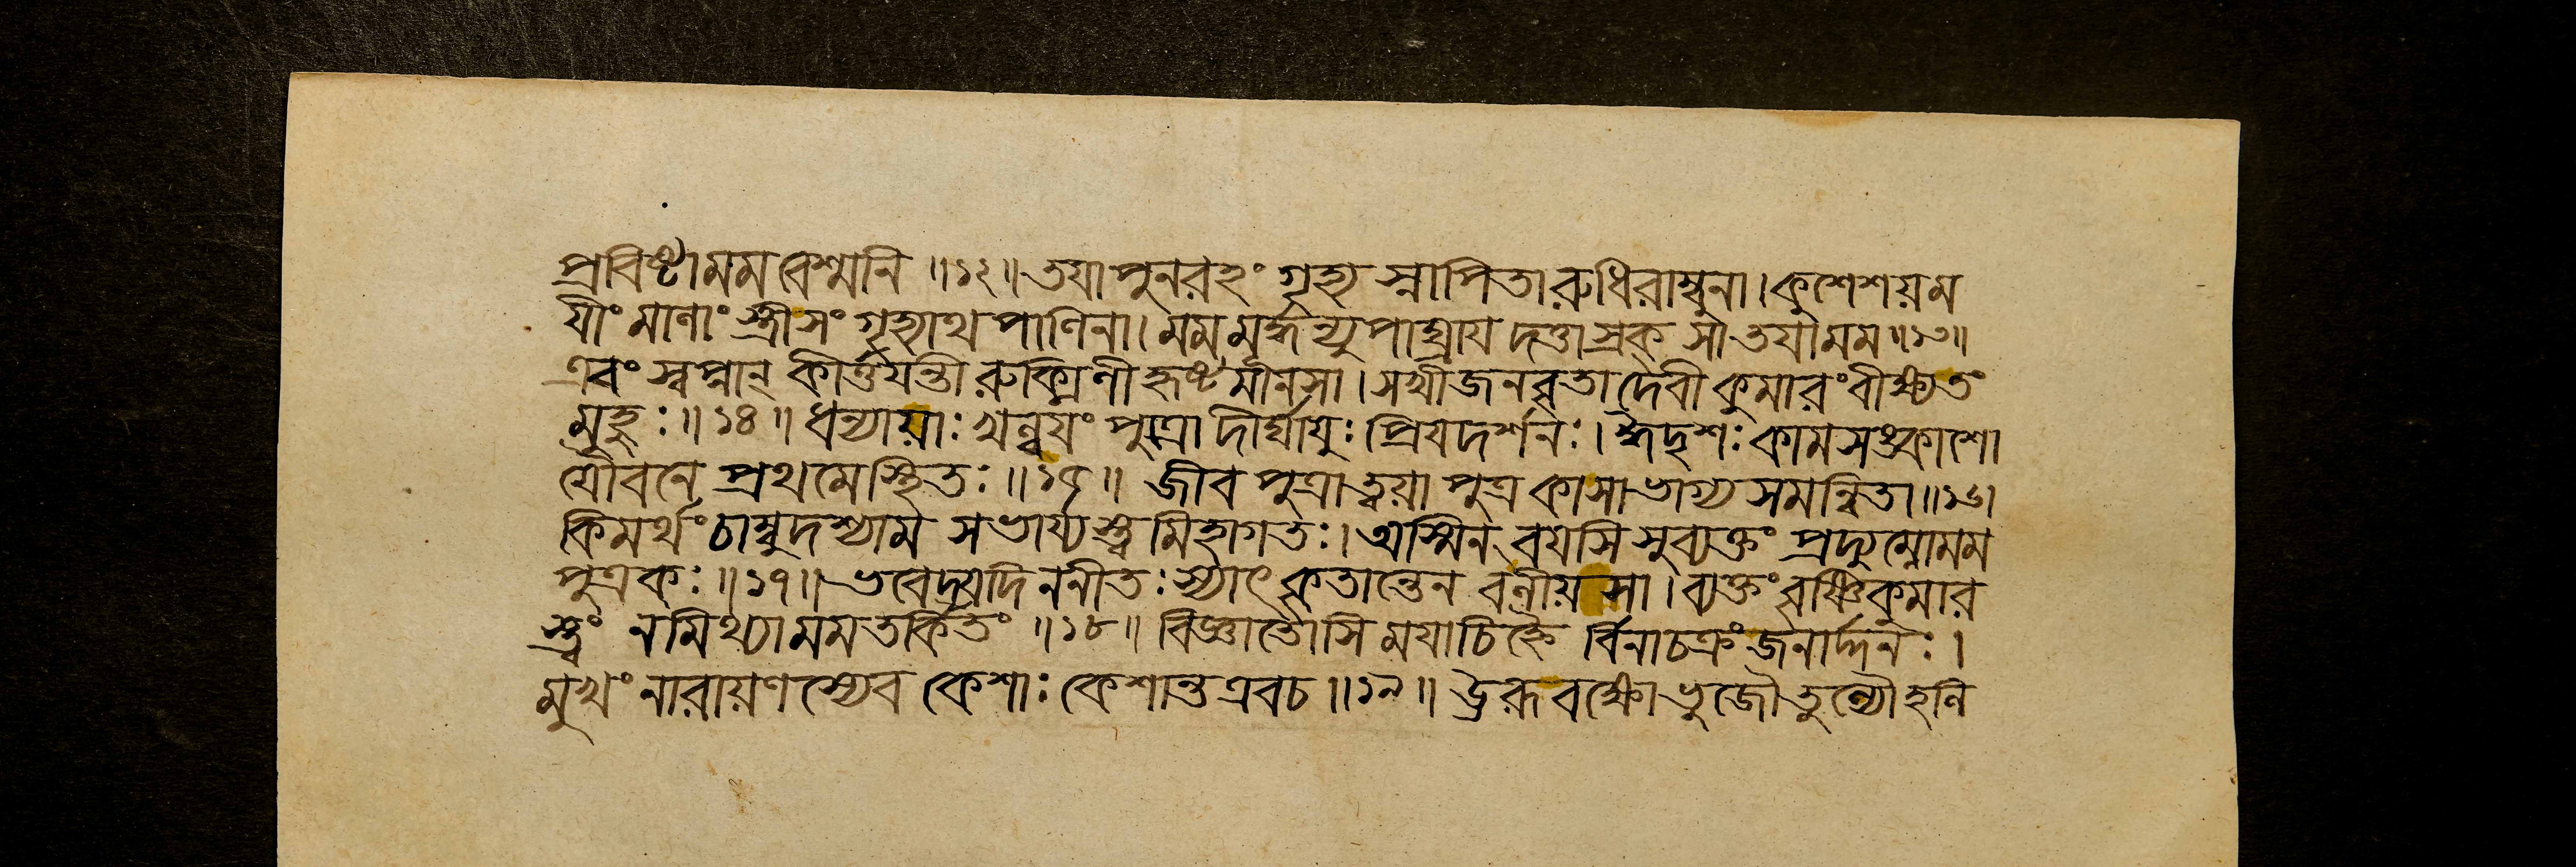 প্রবিষ্টা মম বেশ্মনি ॥ ১২ ॥ তয়া পুনরহং গৃহ্য স্নাপিতা রুধিরাম্বুনা । কুশেশয়ম
যীং মালাং স্ত্রী সংগৃহ্যাথ পাণিনা । মম মূর্দ্ধন্যুপাঘ্রায় দত্তা স্রক্ সা তয়া মম ॥ ১৩ ॥
এবং স্বপ্নান্ কীর্ত্তয়ন্তী রুক্মিণী হৃষ্টমানসা । সখীজনবৃতা দেবী কুমারং বীক্ষ্য তং
মুহুঃ ॥ ১৪ ॥ ধন্যায়াঃ খল্বয়ং পুত্রো দীর্ঘায়ুঃ প্রিয়দর্শনঃ । ঈদৃশঃ কামসঙ্কাশো
যৌবনে প্রথমে স্থিতঃ ॥ ১৫ ॥ জীবপুত্রা ত্বয়া পুত্র কাসৌ ভাগ্যসমন্বিতা ॥ ১৬ ।
কিমর্থং চাম্বুদশ্যাম সভার্য্যস্ত্বমিহাগতঃ । অস্মিন্ বয়সি সুব্যক্তং প্রদ্যুম্নো মম
পুত্রকঃ ॥ ১৭ ॥ ভবেদ্যদি ন নীতঃ স্যাৎ কৃতান্তেন বলীয়সা । ব্যক্তং বৃষ্ণিকুমার
স্ত্বং ন মিথ্যা মম তর্কিতং ॥ ১৮ ॥ বিজ্ঞাতোসি ময়া চিহ্নৈ র্বিনা চক্রং জনার্দ্দনঃ ।
মুখং নারায়ণস্যেব কেশাঃ কেশান্ত এব চ ॥ ১৯ ॥ ঊরূ বক্ষো ভুজৌ তুল্যৌ হলি